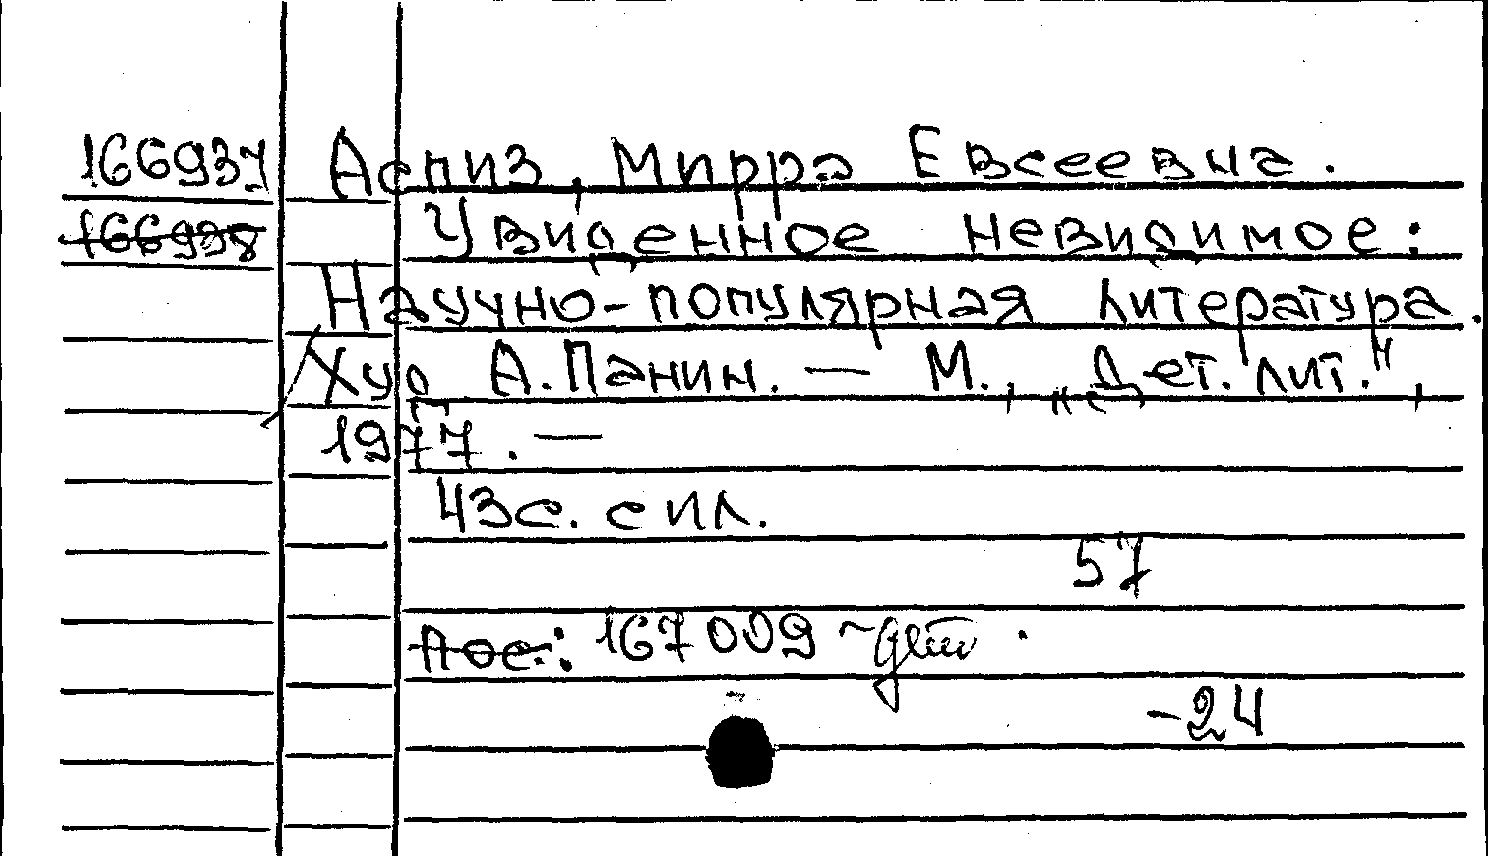 166937 Аспиз, Мирра Евсеевна.
166938 Увиденное невидимое:
Научно-популярная литература.
Худ А. Панин. — М., „Дет. лит.",
1977. —
43 с. с ил.
57
Пос.: 167009 ~ дет.
-24